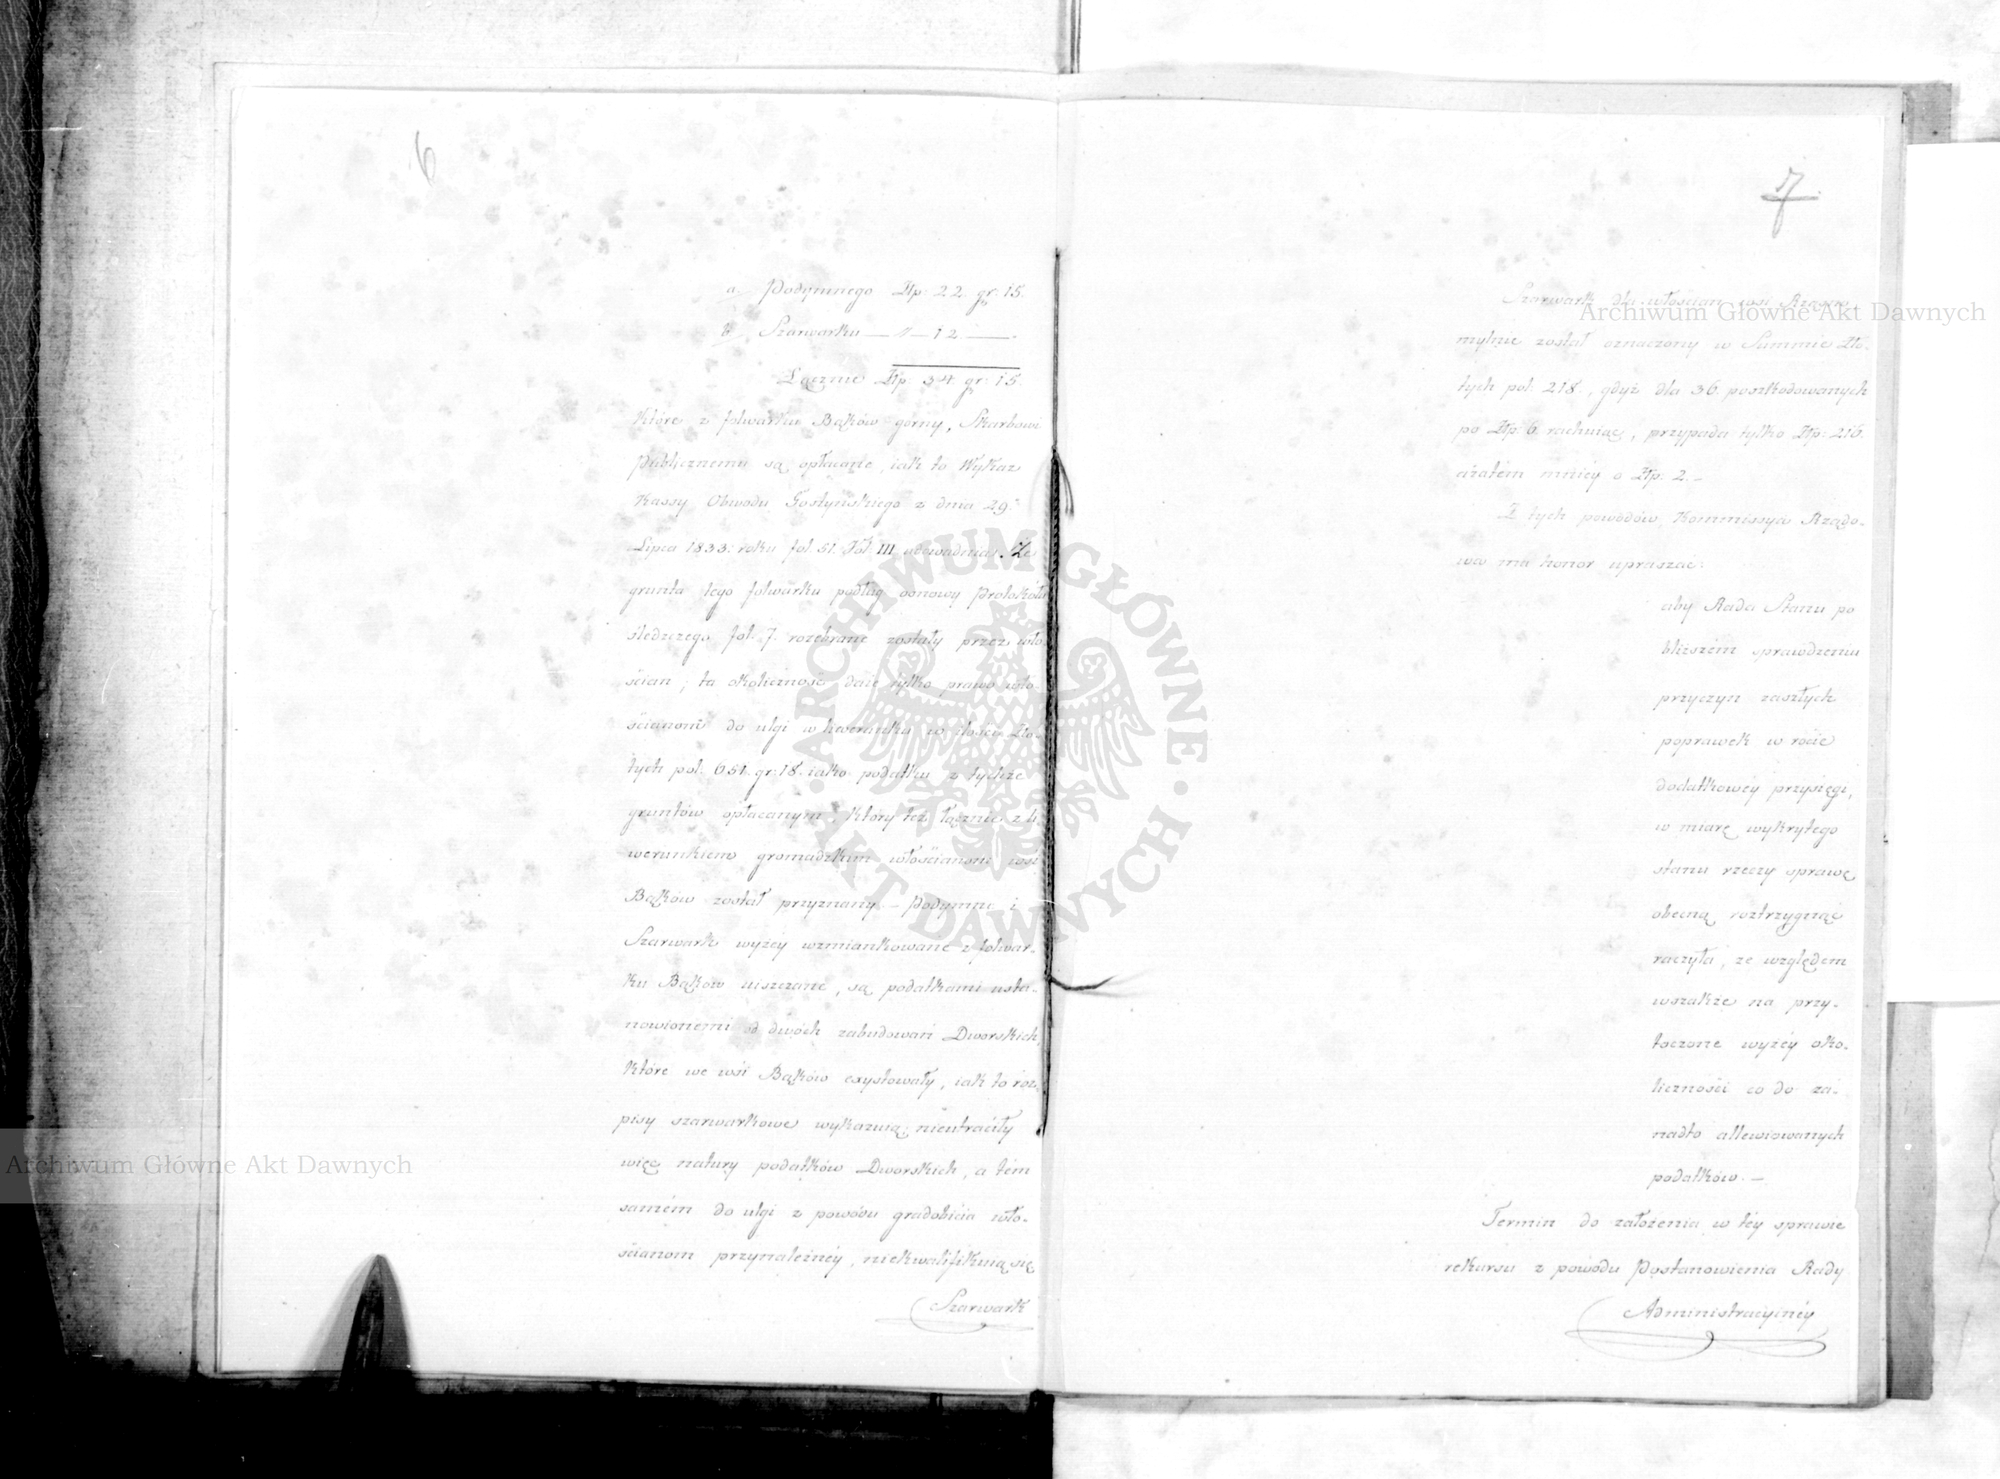 6
a. Podymnego Złp: 22. gr: 15.
b. Szarwarku — 11 — 12. —
Łącznie Złp: 34. gr: 15.
które z folwarku Bąków górny, Skarbowi
Publicznemu są opłacane, iak to Wykaz
Kassy Obwodu Gostyńskiego z dnia 29.
Lipca 1833. roku fol. 51. Vol: III. Że
grunta tego folwarku podług osnowy Protokółu
śledczego fol. 7. rozebrane zostały przez wło-
ścian; ta okoliczność daie tylko prawo wło-
ścianom do ulgi w liwerunku w ilości Zło-
tych pol: 651. gr: 18. iako podatku z tychże
gruntów opłacanym który też łącznie z li-
werunkiem gromadzkim włościanom wsi
Bąków został przyznany. — Podymne i
Szarwark wyżéy wzmiankowane z folwar-
ku Bąków uiszczane, są podatkami usta-
nowionemi od dwóch zabudowań Dworskich,
które we wsi Bąków exystowały, iak to roz-
pisy szarwarkowe wykazuią; nieutraciły
więc natury podatków Dworskich, a tém
samém do ulgi z powodu gradobicia wło-
ścianom przynależnéy, niekwalifikuią się
Szarwark
7
Szarwark dla włościan wsi
mylnie został oznaczony w Summie Zło-
tych pol: 218., gdyż dla 36. poszkodowanych
po Złp: 6. rachuiąc, przypada tylko Złp: 216.
a zatém mniéy o Złp: 2. —
Z tych powodów, Kommissya Rządo-
wa ma honor upraszać:
aby Rada Stanu po
bliższém sprawdzeniu
przyczyn zaszłych
poprawek w rocie
dodatkowéy przysięgi,
w miarę wykrytego
stanu rzeczy sprawę
obecną roztrzygnąć
raczyła, ze względem
wszakże na przy-
toczone wyżéy oko-
liczności co do za-
nadto allewiowanych
podatków. —
Termin do założenia w téy sprawie
rekursu z powodu Postanowienia Rady
Administracyinéy
Archiwum Główne Akt Dawnych
Archiwum Główne Akt Dawnych
ARCHIWUM GŁÓWNE · AKT DAWNYCH ·